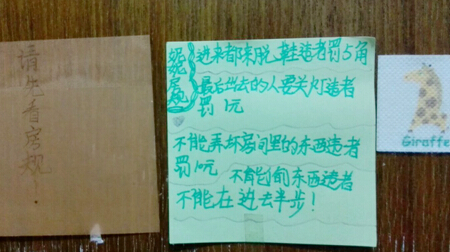 请先看房规!
妮妮房规
进来都来脱鞋违者罚5角
最后出去的人要关灯违者
罚1元
不能弄坏房间里的东西违者
罚10元 不能偷东西违者
不能在进去半步!
Giraffe